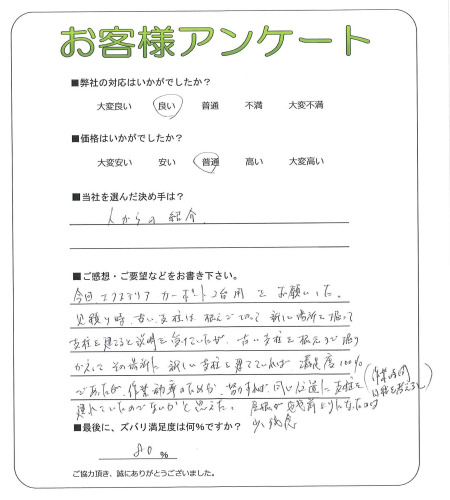 お客様アンケート
■弊社の対応はいかがでしたか？
大変良い 良い 普通 不満 大変不満
■価格はいかがでしたか？
大変安い 安い 普通 高い 大変高い
■当社を選んだ決め手は？
人からの紹介
■ご感想・ご要望などをお書き下さい。
今回エクステリア カーポート2台用をお願いした。
見積り時、古い支柱は根元で切って 新しい場所を掘って
支柱を建てると説明を受けていたが、古い支柱を根元まで掘り
かえして その場所に新しい支柱を建てていれば 満足度100%
であったが、作業効率のためか、 同じ位置に支柱を
建れていたのでないかと思えた。
(作業時間
少し残念
■最後に、ズバリ満足度は何%ですか？
80%
ご協力頂き、誠にありがとうございました。